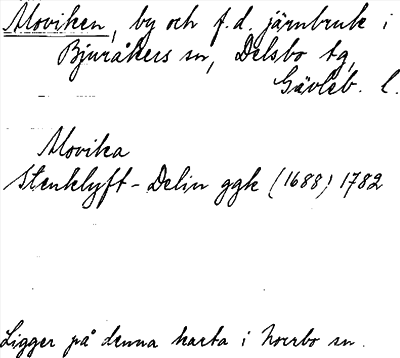 Moviken, by och f.d. järnbruk i
Bjuråkers sn, Delsbo tg,
Gävleb. l.
Movika
Stenklyft-Delin ggk (1688) 1782
Ligger på denna karta i Norrbo sn.